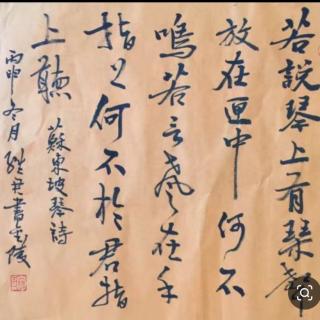 若說琴上有琴聲
放在匣中何不
鳴若言聲在手
指上何不於君指
上聽
蘇東坡琴詩
丙申冬月書金陵